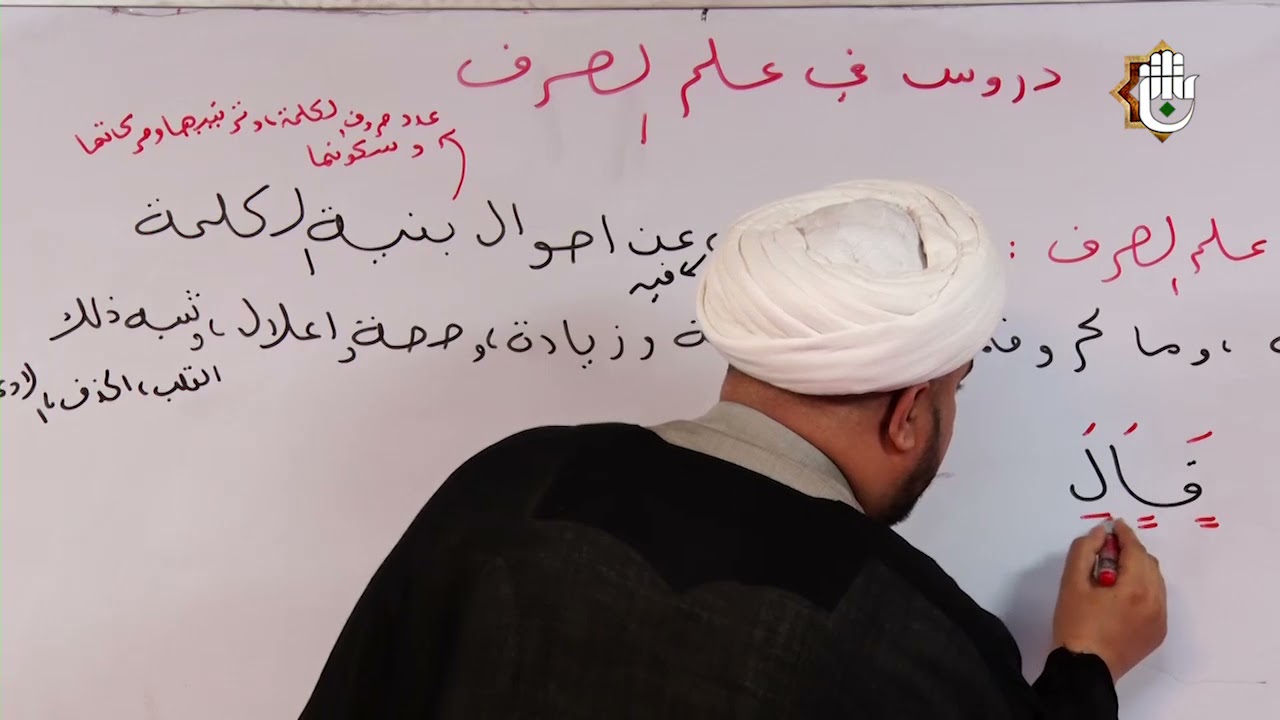 دروس في علم الصرف
عدد حروف الكلمة، وترتيبها وحركاتها
وسكونها
علم الصرف : عن احوال بنية الكلمة
فيه
، وما لحروفه وزيادة، وصحة واعلال، وشبه ذلك
القلب، الحذف،
قَـَالَ